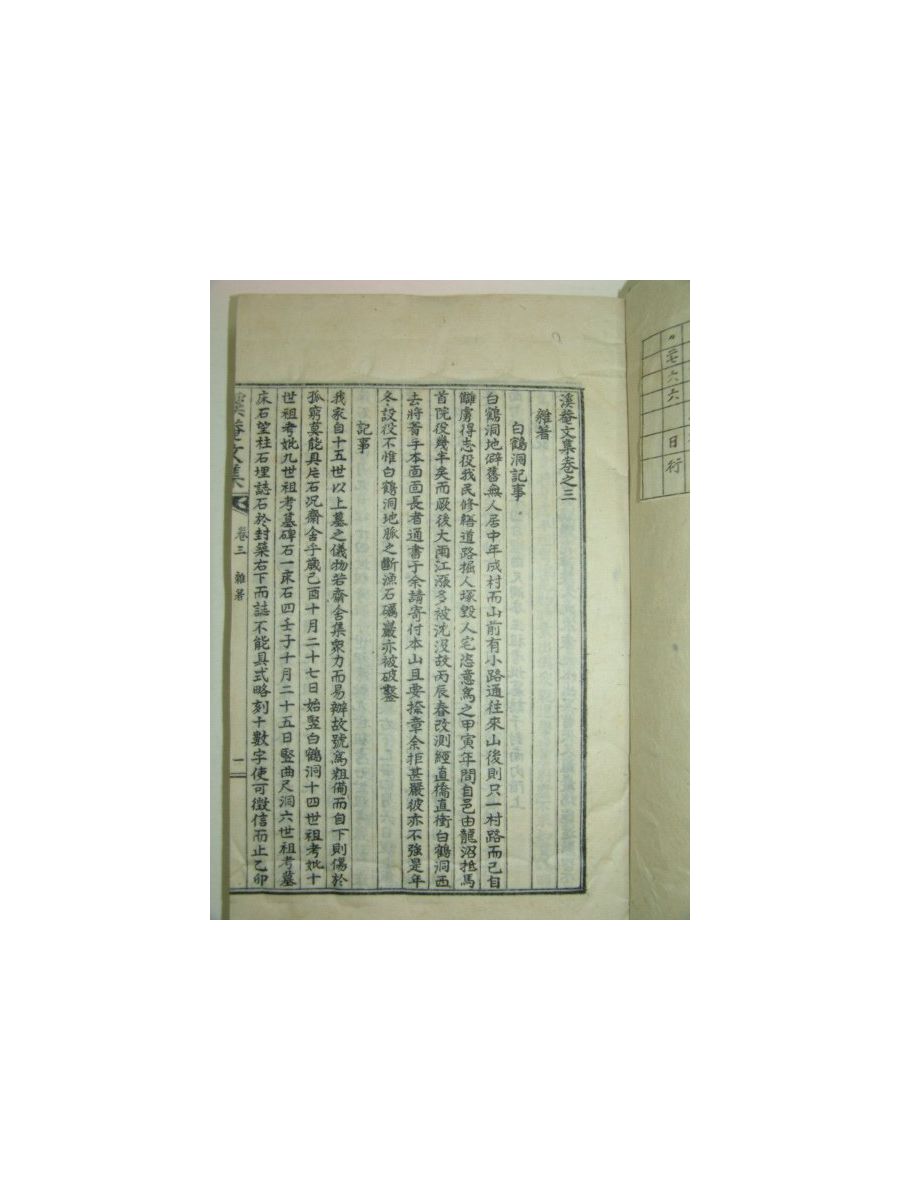 溪菴文集卷之三
雜著
白鶴洞記事
白鶴洞地僻舊無人居中年成村而山前有小路通往來山後則只一村路而已自
讎虜得志役我民修繕道路掘人塚毁人宅恣意爲之甲寅年間自邑由龍沼抵馬
首院役幾半矣而厥後大雨江漲多被沈沒故丙辰春改測經直橋直衝白鶴洞西
去將着手本面面長者通書于余請寄付本山且要捺章余拒甚嚴彼亦不強是年
冬設役不惟白鶴洞地脈之斷漁石礪巖亦被破鑿
記事
我家自十五世以上墓之儀物若齋舍集衆力而易辦故號爲粗備而自下則傷於
孤窮莫能具片石况齋舍乎歲己酉十月二十七日始竪白鶴洞十四世祖考妣十
世祖考妣九世祖考墓碑石一床石四壬子十月二十五日竪曲尺洞六世祖考墓
床石望柱石埋誌石於封塋右下而誌不能具式略刻十數字使可徵信而止乙卯
溪菴文集 卷三 雜著 一
〃 三七六六 日行